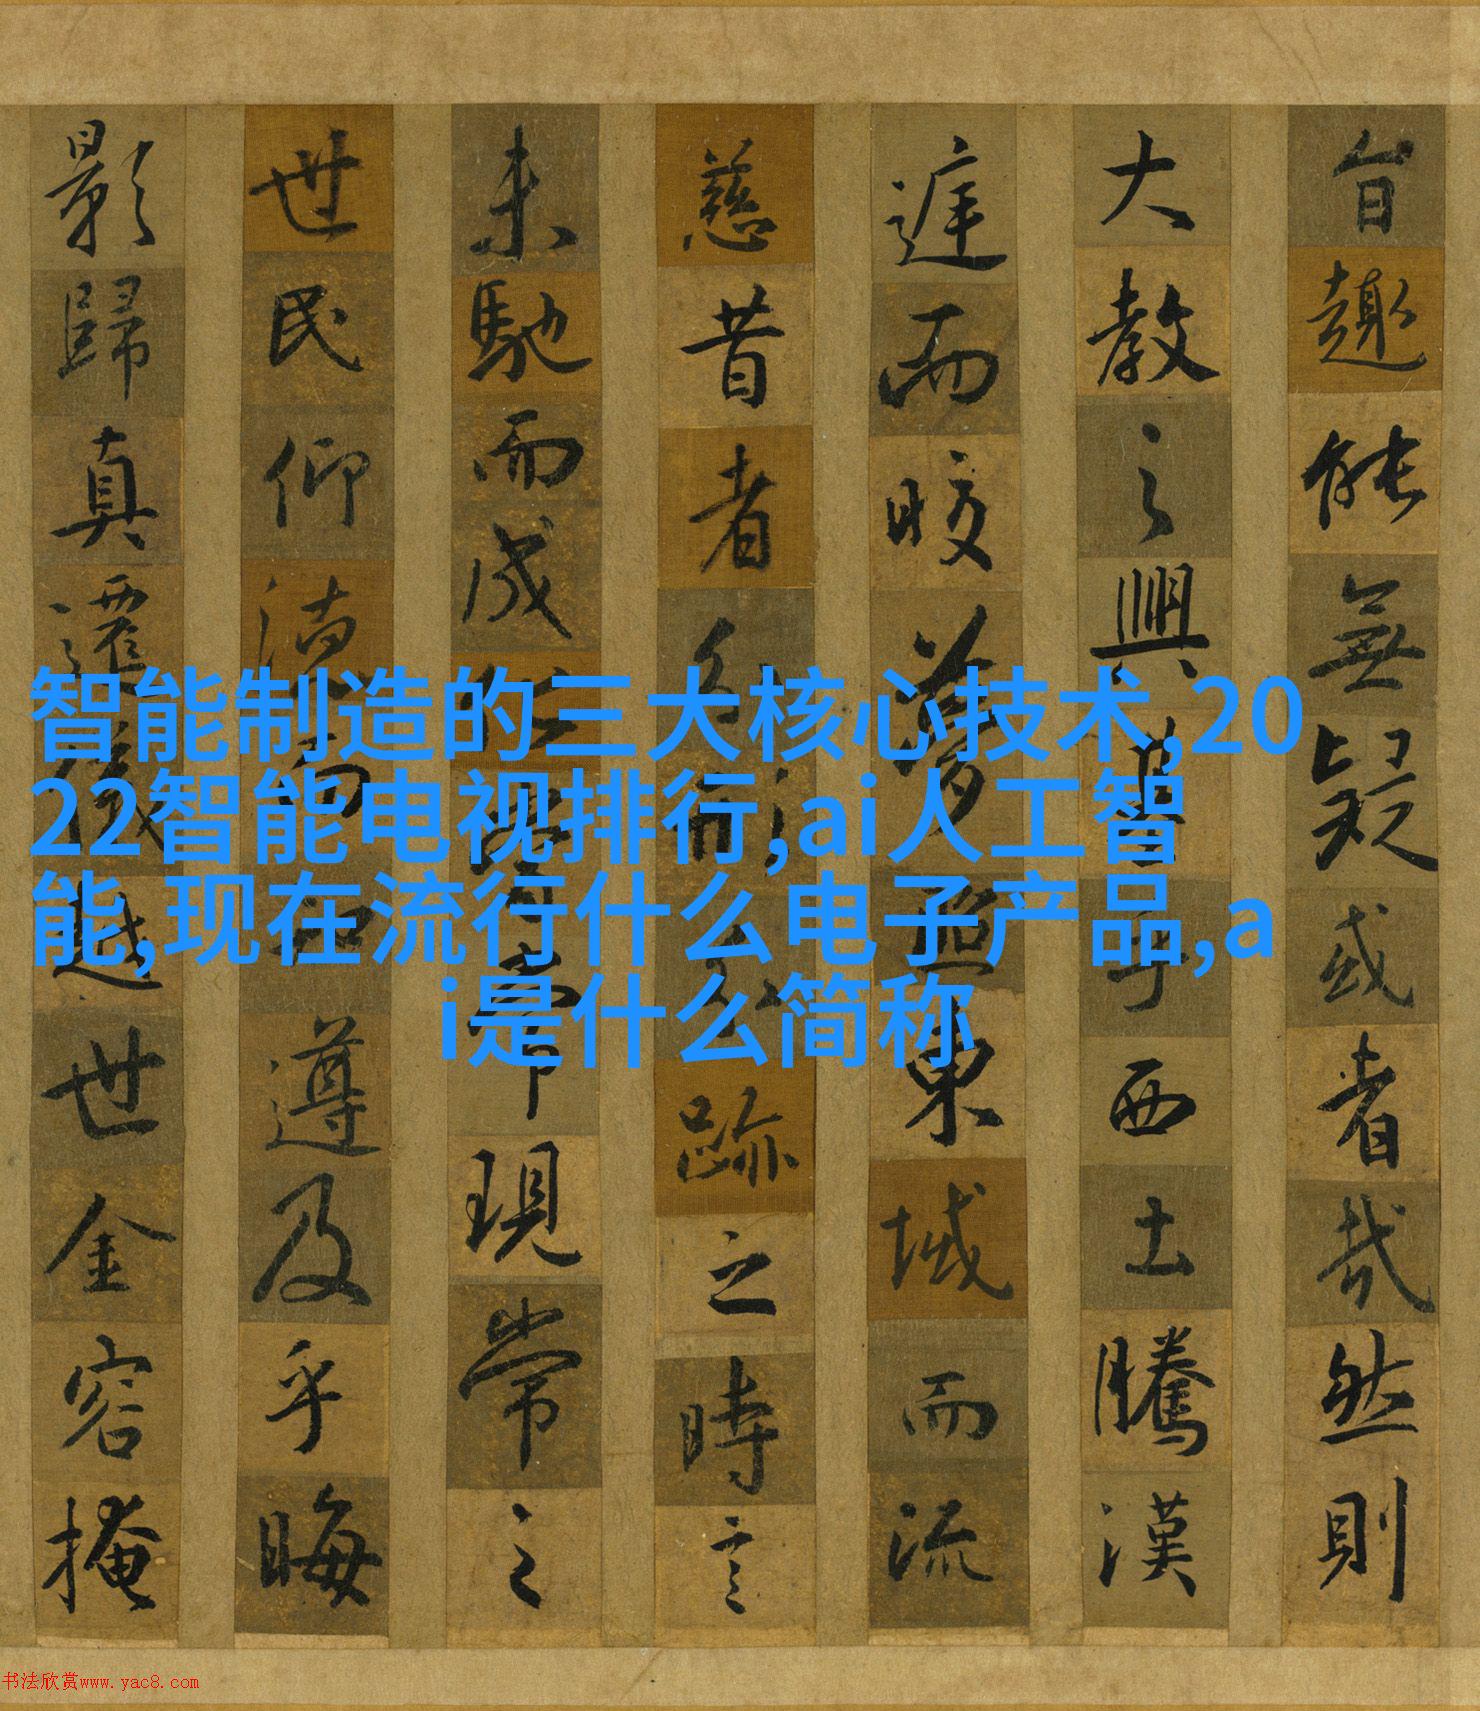 旨趣能無疑或者哉然則
大教之興基乎西土騰漢
庭而皎夢照東域而流
慈昔者分形分跡之時言
未馳而成化當常現常之
世民仰德而知遵及乎晦
影歸真遷儀越世金容掩
智能制造的三大核心技术,20
22智能电视排行,ai人工智
能,现在流行什么电子产品,a
i是什么简称
书法欣赏www.yac8.com